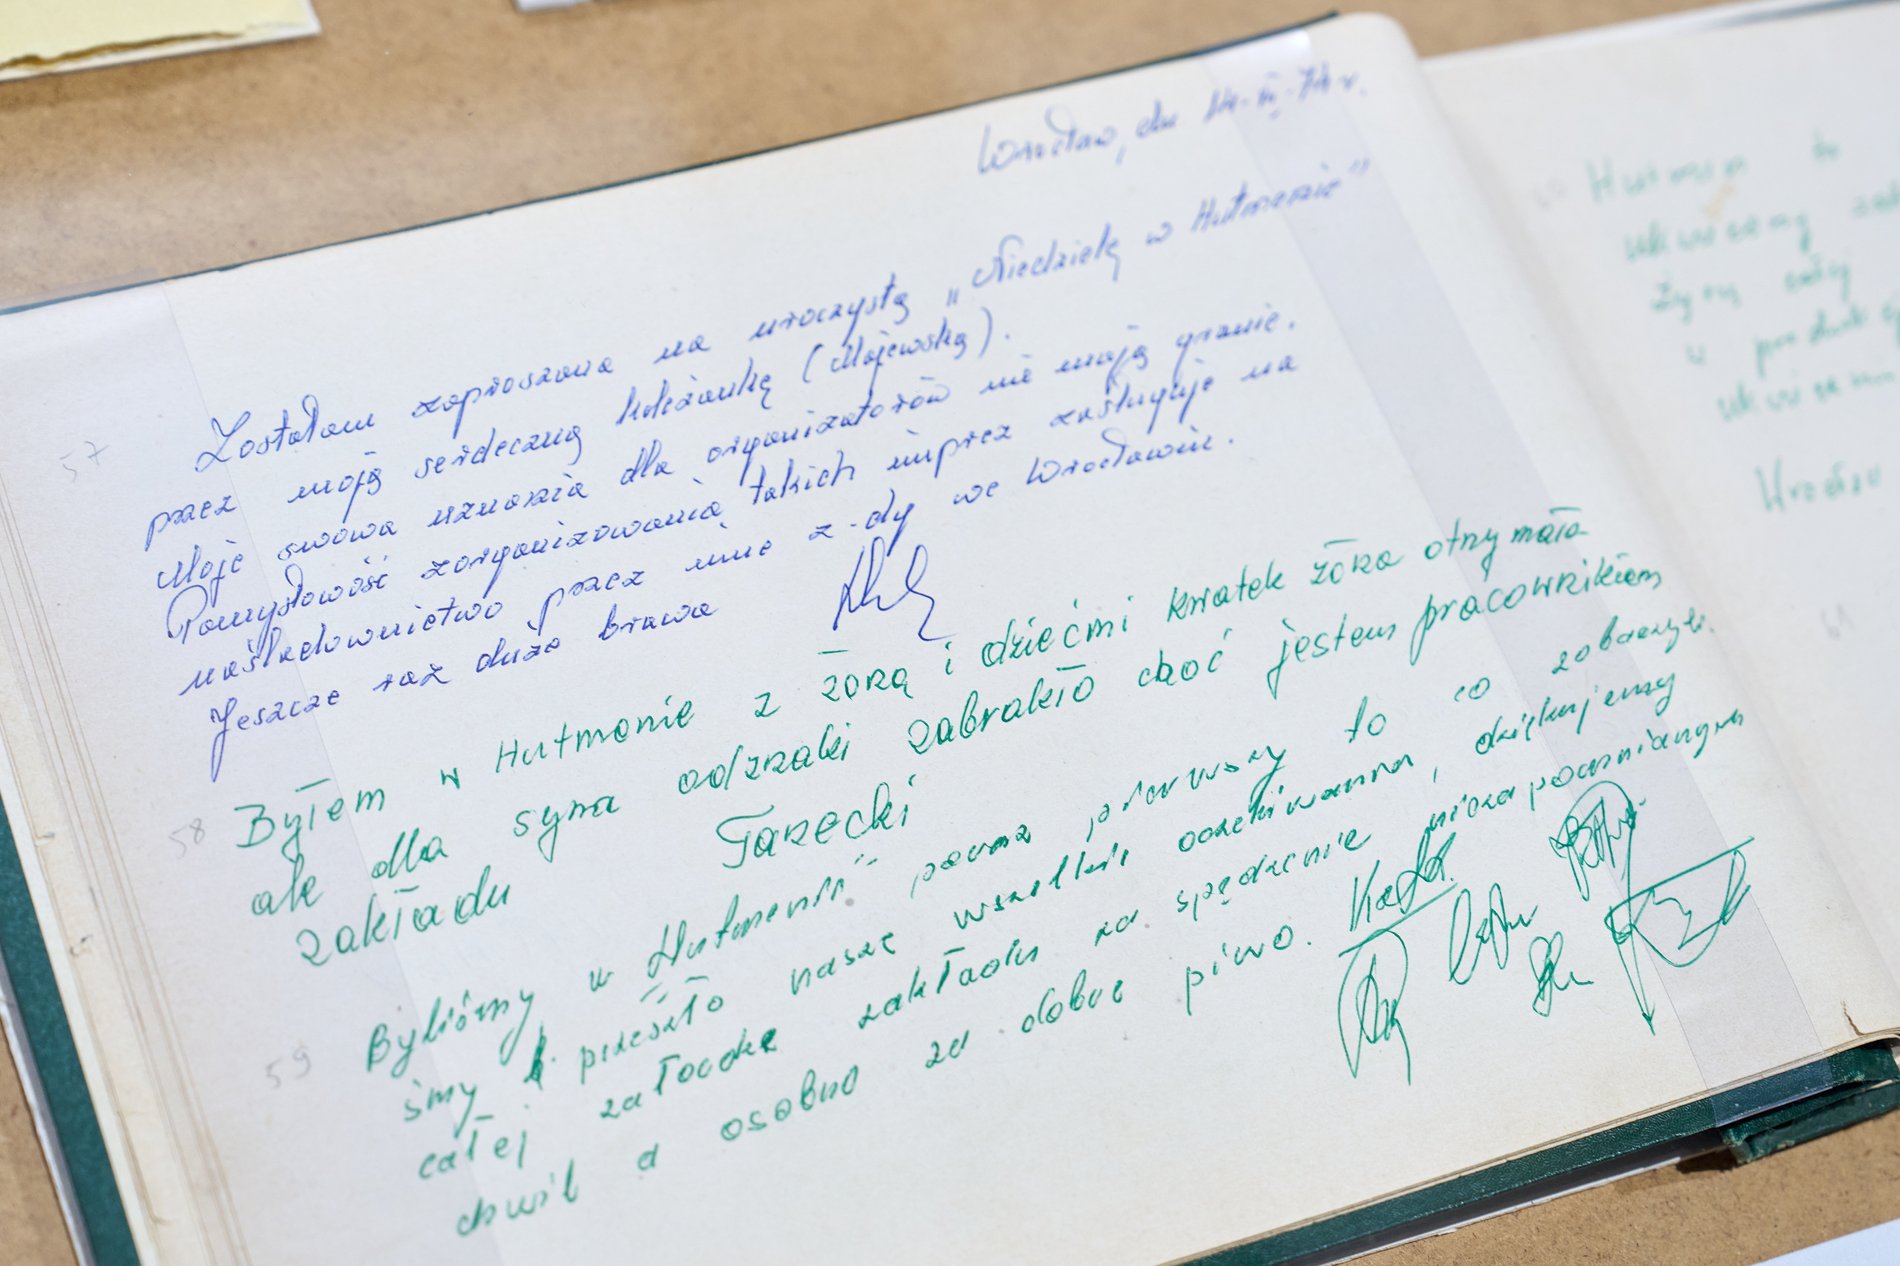 Wrocław, dn 14-III-74 r.
57
Zostałam zaproszona na uroczystą „Niedzielę w Hutmenie"
przez moją serdeczną koleżankę (Majewską).
Moje słowa uznania dla organizatorów nie mają granic.
Pomysłowość zorganizowania takich imprez zasługuje na
naśladownictwo przez inne z-dy we Wrocławiu.
Jeszcze raz duże brawa
58
Byłem w Hutmenie z żoną i dziećmi kwiatek żona otrzymała
ale dla syna odznaki zabrakło choć jestem pracownikiem
zakładu
Tarecki
59
Byliśmy w „Hutmenie" poraz pierwszy to co zobaczyli-
śmy przeszło nasze wszelkie oczekiwania, dziękujemy
całej załodze zakładu za spędzenie niezapomnianych
chwil a osobno za dobre piwo.
Hutmen
w
Wrocław
61